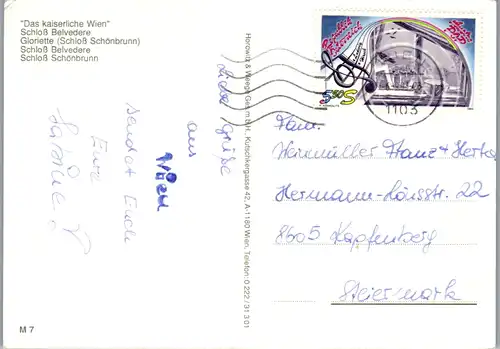 "Das kaiserliche Wien"
Schloß Belvedere
Gloriette (Schloß Schönbrunn)
Schloß Belvedere
Schloß Schönbrunn
Liebe Grüße
aus
Wien
sendet Euch
Eure
Sabine
M 7
Horowitz & Weege Ges.m.b.H., Kutschkergasse 42, A-1180 Wien, Telefon: 0 222 / 31 3 01
1103
Fam.
Franz + Herta
Hermann-Lönsstr. 22
8605 Kapfenberg
Steiermark